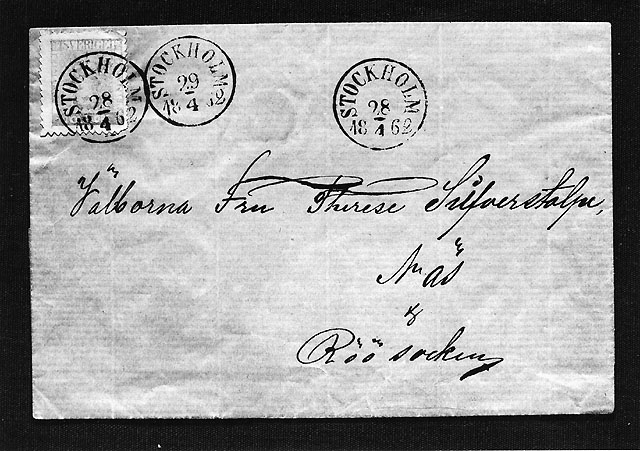 SVERIGE
STOCKHOLM
28
4
18 62
STOCKHOLM
29
4
18 62
STOCKHOLM
28
4
18 62
Välborna Fru Therese Silfverstolpe,
Näs
&
Röö socken